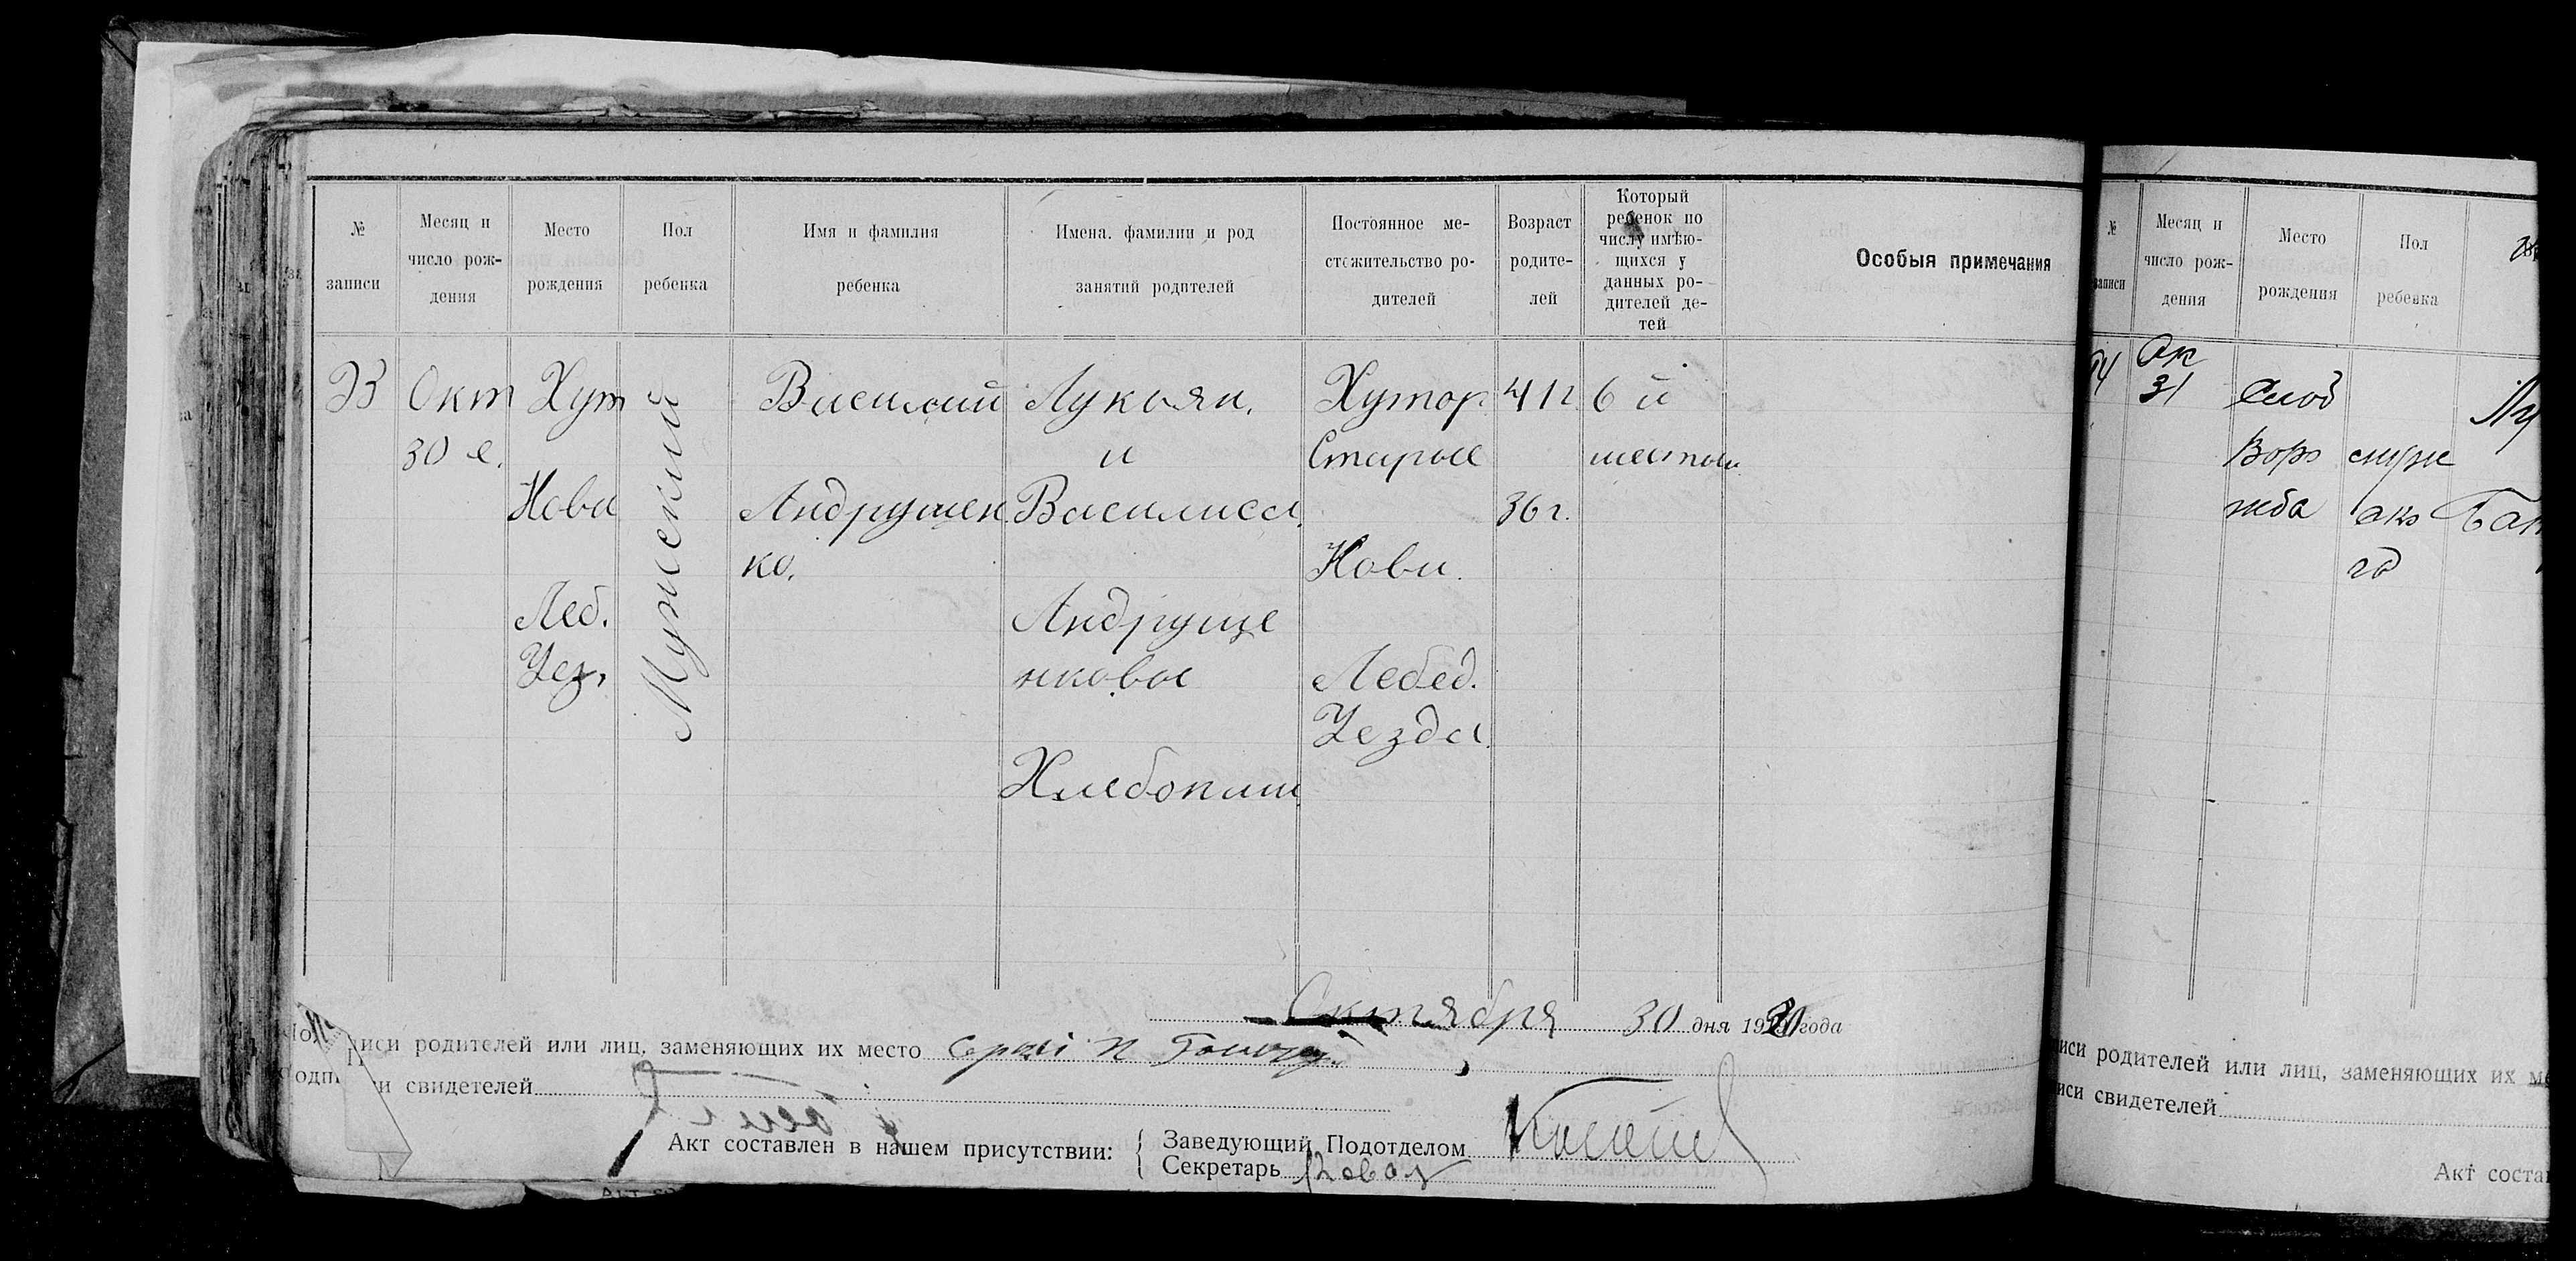 № записи
Месяц и число рождения
Место рождения
Пол ребенка
Имя и фамилия ребенка
Имена. фамилии и род занятий родителей
Постоянное местожительство родителей
Возраст родителей
Который ребенок по числу имѣющихся у данных родителей детей
Особыя примечания
Окт
30 е.
Хут
Нова
Леб.
Уез.
Мужеский
Василий
Андрушен
ко.
Лукьян.
и
Василиса
Андруще
нковы
Хлебопаш
Хутор
Старые
Нови.
Лебед.
Уезда.
41 г.
36 г.
6 й
шестой
Октября 30 дня 1920 года
писи родителей или лиц, заменяющих их место
и свидетелей
Акт составлен в нашем присутствии:
Заведующий Подотделом
Секретарь
№ записи
Месяц и число рождения
Место рождения
Пол ребенка
Ок
31
Слоб
Вор
жба
Лу
писи родителей или лиц, заменяющих их
иси свидетелей
Акт соста